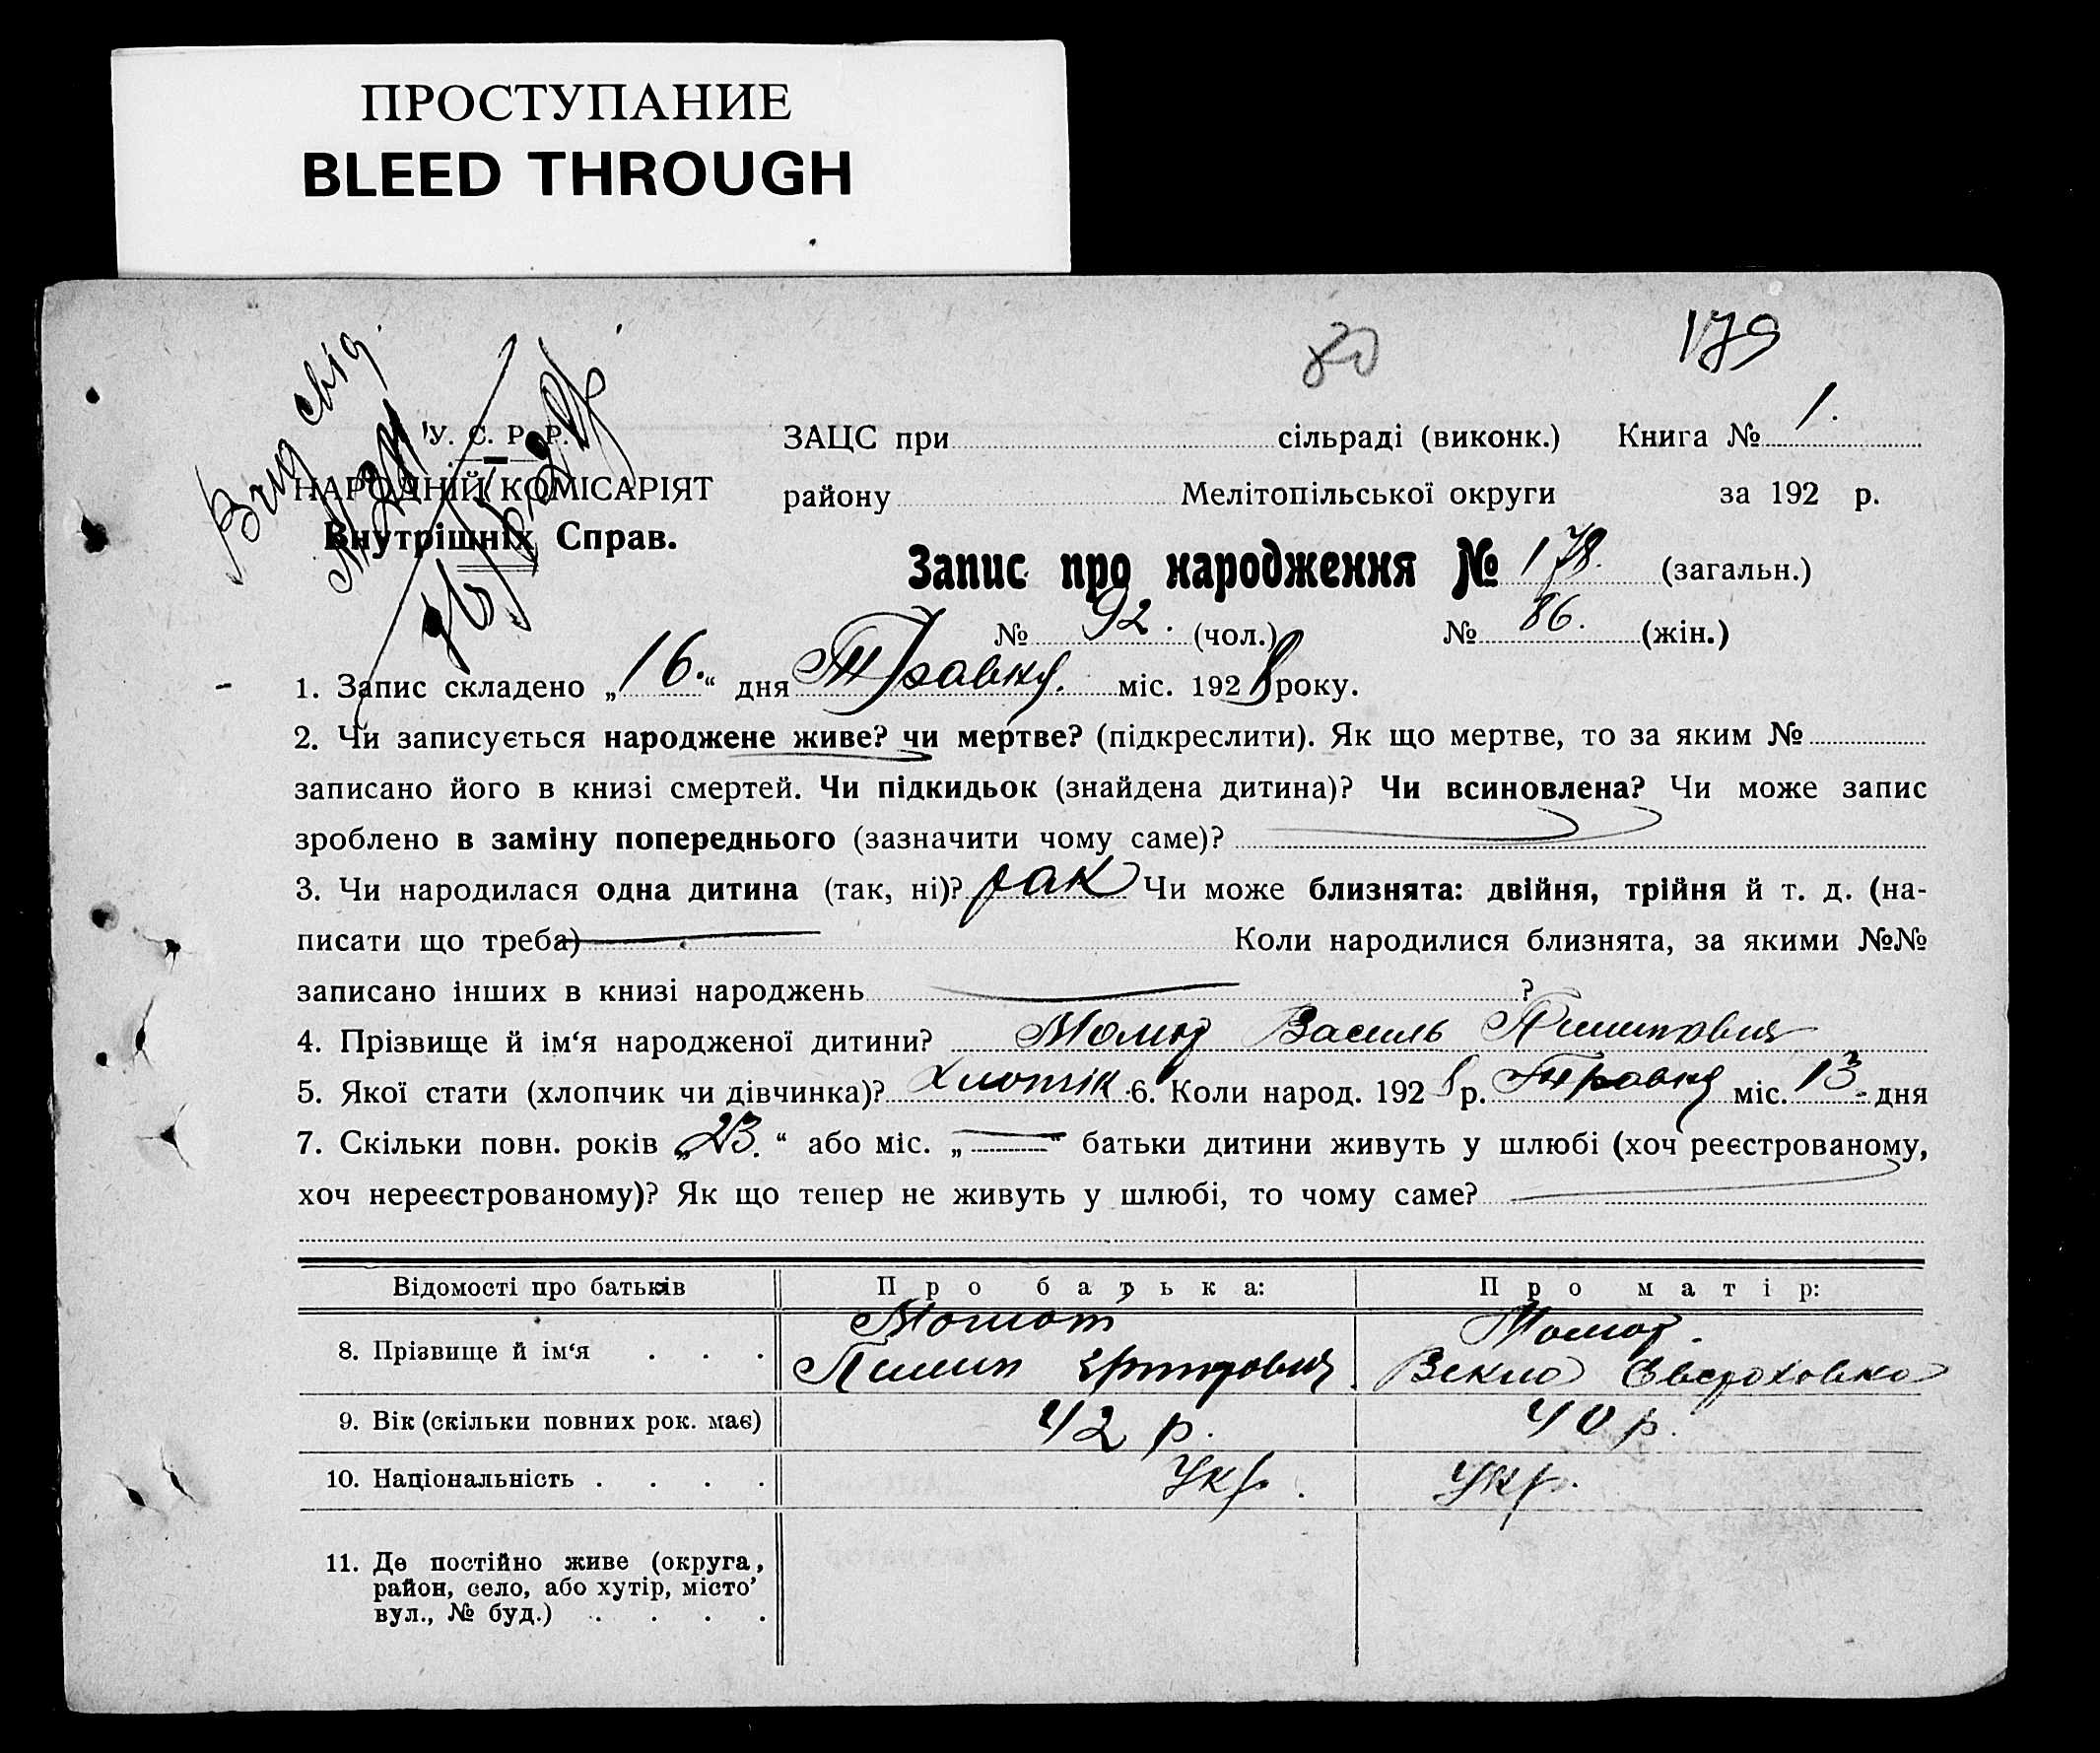 ПРОСТУПАНИЕ
BLEED THROUGH
80
179
У. С. Р. Р.
НАРОДНІЙ КОМІСАРІЯТ
Внутрішніх Справ.
ЗАЦС при сільраді (виконк.) Книга № 1.
району Мелітопільської округи за 192 р.
Запис про народження № 178. (загальн.)
№ 92. (чол.) № 86. (жін.)
1. Запис складено „16.“ дня Травня. міс. 1928 року.
2. Чи записується народжене живе? чи мертве? (підкреслити). Як що мертве, то за яким №
записано його в книзі смертей. Чи підкидьок (знайдена дитина)? Чи всиновлена? Чи може запис
зроблено в заміну попереднього (зазначити чому саме)?
3. Чи народилася одна дитина (так, ні)? так Чи може близнята: двійня, трійня й т. д. (на-
писати що треба) Коли народилися близнята, за якими №№
записано інших в книзі народжень ?
4. Прізвище й ім‘я народженої дитини? Василь
5. Якої стати (хлопчик чи дівчинка)? 6. Коли народ. 1928 р. Травня міс. 13 дня
7. Скільки повн. років „23.“ або міс. „ “ батьки дитини живуть у шлюбі (хоч реєстрованому,
хоч нереєстрованому)? Як що тепер не живуть у шлюбі, то чому саме?
Відомості про батьків Про батька: Про матір:
8. Прізвище й ім‘я . . . Пилип
9. Вік (скільки повних рок. має) 42 р. 40 р.
10. Національність . . . . Укр. Укр.
11. Де постійно живе (округа,
район, село, або хутір, місто’
вул., № буд.) . . . .